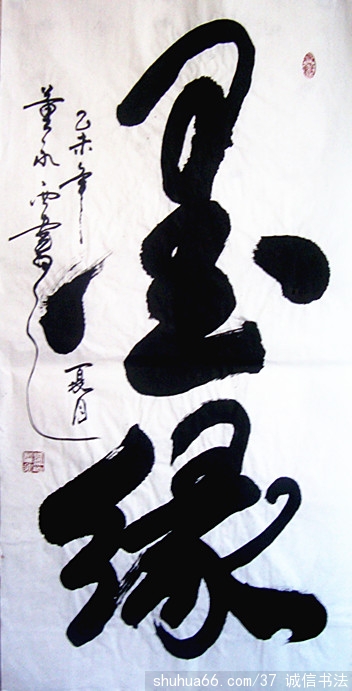 墨缘
乙未年夏月
董永西书
shuhua66.com/37 诚信书法